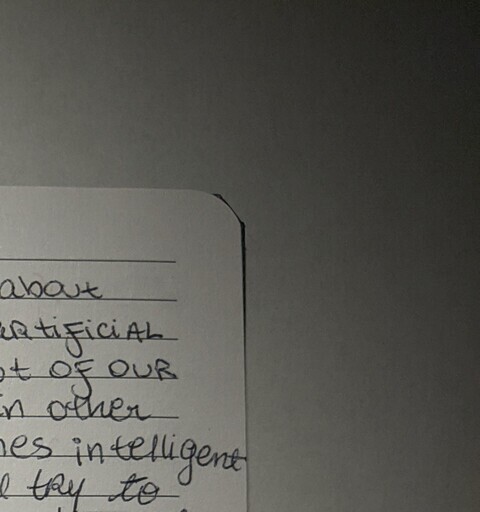 about
artificiAL
OF OUR
in other
intelligent
try to